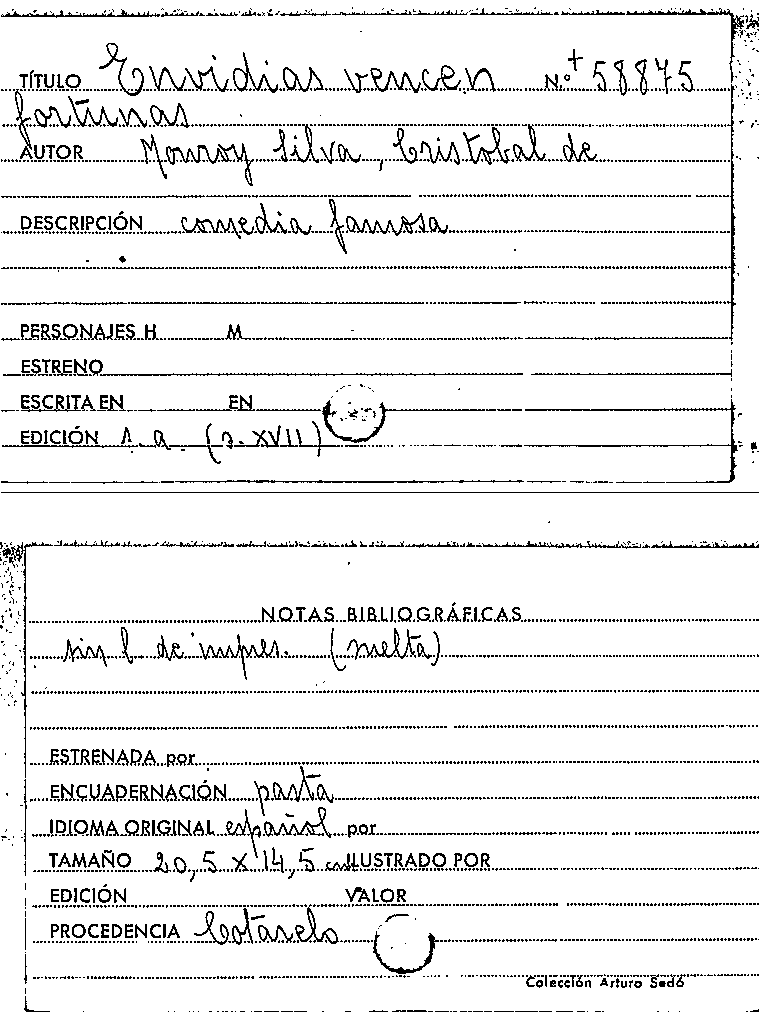 TÍTULO Envidias vencen N.º + 58875
fortunas
AUTOR Monroy Silva, Cristobal de
DESCRIPCIÓN comedia famosa
PERSONAJES H M
ESTRENO
ESCRITA EN EN
EDICIÓN s. a. (s. XVII)
NOTAS BIBLIOGRÁFICAS
sin l. de impres. (suelta)
ESTRENADA por
ENCUADERNACIÓN pasta
IDIOMA ORIGINAL español por
TAMAÑO 20,5 x 14,5 cm ILUSTRADO POR
EDICIÓN VALOR
PROCEDENCIA Cotarelo
Colección Arturo Sedó